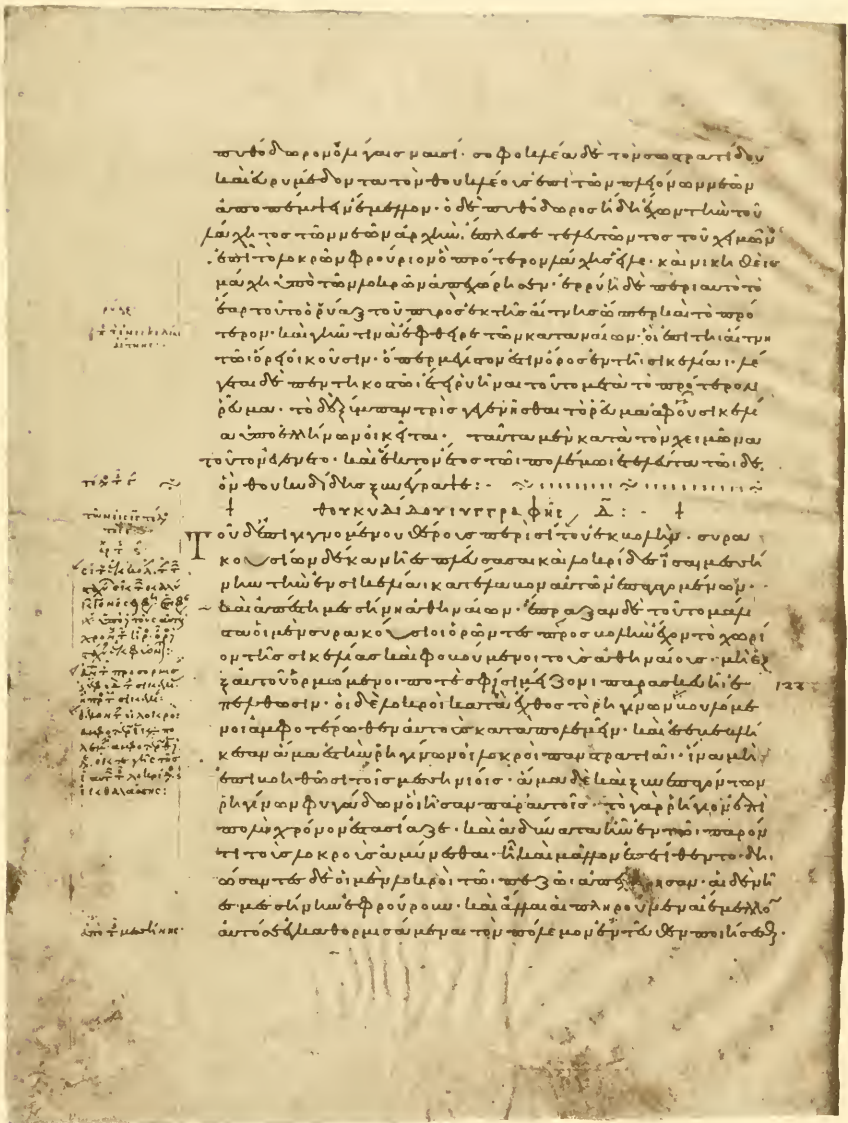 πυθόδωρον ὀλίγαις ναυσί· σοφοκλέα δὲ τὸν σωστρατίδου
καὶ εὐρυμέδοντα τὸν θουκλέους ἐπὶ τῶν πλειόνων νεῶν
ἀποπέμψειν ἔμελλον· ὁ δὲ πυθόδωρος ἤδη ἔχων τὴν τοῦ
λάχητος τῶν νεῶν ἀρχὴν, ἔπλευσε τελευτῶντος τοῦ χειμῶν
ἐπὶ τὸ λοκρῶν φρούριον ὃ πρότερον λάχης εἷλε· καὶ νικηθεὶς
μάχηι ὑπὸ τῶν λοκρῶν ἀπεχώρησεν· ἐρρύη δὲ περὶ αὐτὸ τὸ
ἔαρ τοῦτο ὁ ῥύαξ τοῦ πυρὸς ἐκ τῆς αἴτνης ὥσπερ καὶ τὸ πρό
τερον· καὶ γῆν τινα ἔφθειρε τῶν καταναίων· οἳ ἐπὶ τῆι αἴτνηι
τῶι ὄρει οἰκοῦσιν· ὅπερ μέγιστον ἐστὶν ὄρος ἐν τῆι σικελίαι· λέ
γεται δὲ πεντηκοστῶι ἔτει ῥυῆναι τοῦτο μετὰ τὸ πρότερον
ῥεῦμα· τὸ δὲ ξύμπαν τρὶς γεγενῆσθαι τὸ ῥεῦμα ἀφ' οὗ σικελί
α ὑπὸ ἑλλήνων οἰκεῖται· ταῦτα μὲν κατὰ τὸν χειμῶνα
τοῦτον ἐγένετο· καὶ ἕκτον ἔτος τῶι πολέμωι ἐτελεύτα τῶιδε,
ὃν θουκυδίδης ξυνέγραψε:-
θουκυδίδου συγγραφῆς Δ̅:-
Τοῦ δ' ἐπιγιγνομένου θέρους περὶ σίτου ἐκβολὴν· συρα
κοσίων δέκα νῆες πλεύσασαι καὶ λοκρίδες ἴσαι μεσσή
νην τὴν ἐν σικελίαι κατέλαβον αὐτῶν ἐπαγομένων·
καὶ ἀπέστη μεσσήνη ἀθηναίων· ἔπραξαν δὲ τοῦτο μάλι
στα οἱ μὲν συρακόσιοι ὁρῶντες προσβολὴν ἔχον τὸ χωρί
ον τῆς σικελίας καὶ φοβούμενοι τοὺς ἀθηναίους· μὴ ἐξ
ξ αὐτοῦ ὁρμώμενοι ποτὲ σφίσι μείζονι παρασκευῆι ἐ
πέλθωσιν· οἱ δὲ λοκροὶ κατὰ ἔχθος τὸ ῥηγίνων βουλόμε
νοι ἀμφοτέρωθεν αὐτοὺς καταπολεμεῖν· καὶ ἐσεβεβλή
κεσαν ἅμα ἐς τὴν ῥηγίνων οἱ λοκροὶ πανστρατιᾶι· ἵνα μὴ
ἐπιβοηθῶσι τοῖς μεσσηνίοις· ἅμα δὲ καὶ ξυνεπαγόντων
ῥηγίνων φυγάδων οἳ ἦσαν παρ' αὐτοῖς· τὸ γὰρ ῥήγιον ἐπὶ
πολὺν χρόνον ἐστασίαζε· καὶ ἀδύνατα ἦν ἐν τῶι παρόν
τι τοὺς λοκροὺς ἀμύνεσθαι· ἧι καὶ μᾶλλον ἐπετίθεντο· δηι
ώσαντες δὲ οἱ μὲν λοκροὶ τῶι πεζῶι ἀπεχώρησαν· αἱ δὲ νῆ
ες μεσσήνην ἐφρούρουν· καὶ ἄλλαι αἱ πληρούμεναι ἔμελλον
αὐτόσε ἐγκαθορμισάμεναι τὸν πόλεμον ἐντεῦθεν ποιήσεσθαι·